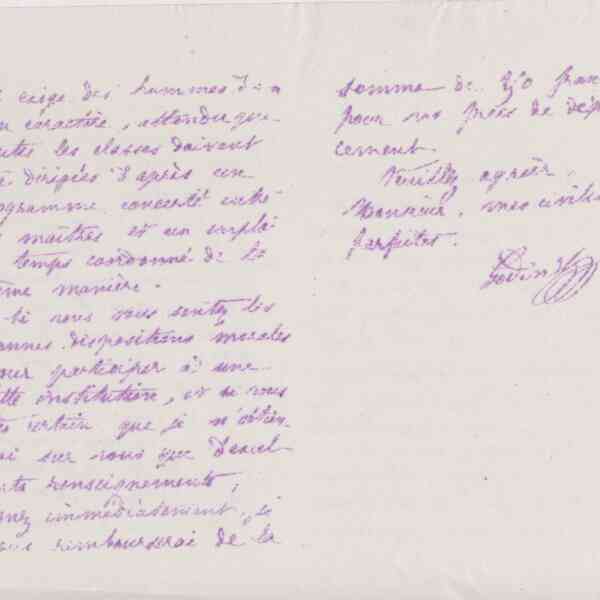 exige des hommes d'un
caractère, attendu que
toutes les classes doivent
dirigées d'après un
programme concerté entre
maîtres et un emploi
temps coordonné de la
même manière.
si vous vous sentez les
bonnes dispositions morales
pour participer à une
telle institution, et si vous
êtes certain que je n'obtien-
drai sur vous que d'excel-
lents renseignements,
venez immédiatement, je
vous rembourserai de la
somme de francs
pour vos frais de dépla-
cement.
Veuillez agréer,
Monsieur, mes civilités
parfaites.
Godin